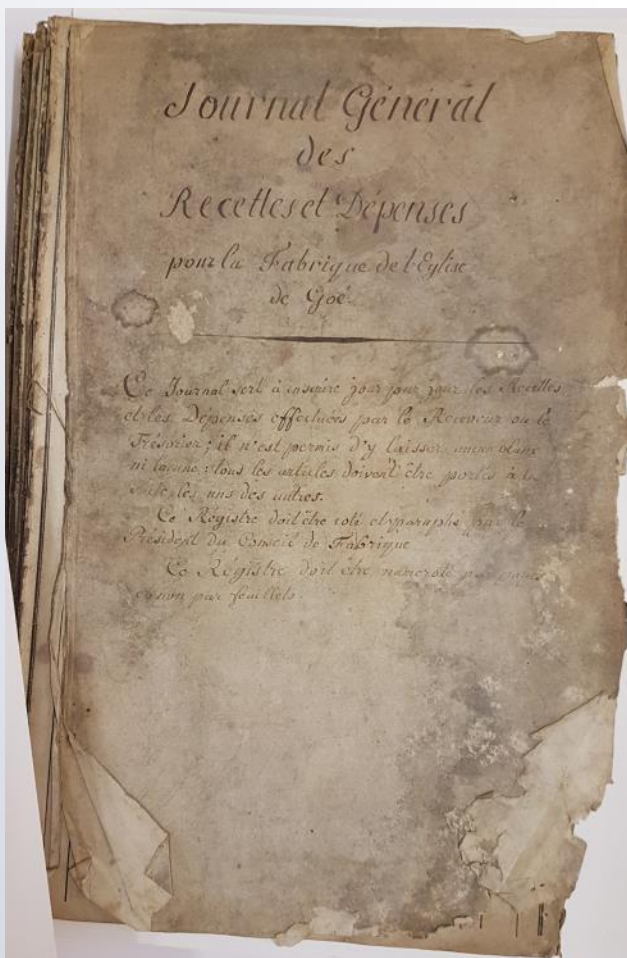 Journal Général
des
Recettes et Dépenses
pour la Fabrique de l'Eglise
de Goé.
Ce Journal sert à inscrire jour pour jour les Recettes
et les Dépenses effectuées par le Receveur ou le
Trésorier; il n'est permis d'y laisser aucun blanc
ni lacune: tous les articles doivent être portés à la
suite les uns des autres.
Ce Régistre doit être coté et paraphé par le
Président du Conseil de Fabrique
Ce Régistre doit être numeroté par
et non par feuillets.